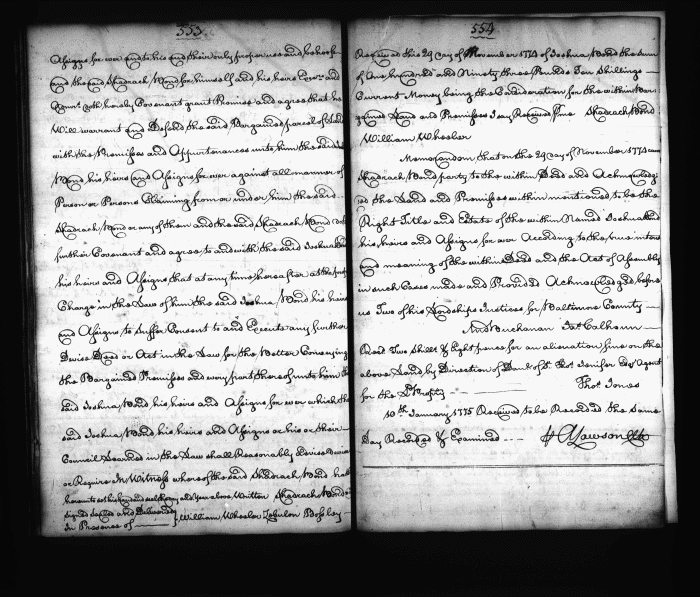 333
Assigns for ever and to his and their only proper use and behoof
and the said Shadrach Bond for himself and his heirs Exors and
Admrs doth hereby Covenant grant Promise and agree that he
Will warrant and Defend the said Bargained parcel of Land
with the Premises and Appurtenances unto him the said
Bond his heirs and Assigns for ever against all manner of
Person or Persons Claiming from or under him the said
Shadrach Bond or any of them and the said Shadrach Bond doth
further Covenant and agree to and with the said Joshua Bond
his heirs and Assigns that at any time hereafter at the
Charge in the Law of him the said Joshua Bond his heirs
and Assigns to Suffer Consent to and Execute any further
Devise Deed or Act in the Law for the Better Conveying
the Bargained Premises and every part thereof unto him the
said Joshua Bond his heirs and Assigns for ever which the
said Joshua Bond his heirs and Assigns or his or their
Council Learned in the Law shall Reasonably Devise
or Require In Witness whereof the said Shadrach Bond hath
hereunto set his hand and seal the day and Year above Written Shadrach Bond
Signed Sealed and Delivered
In Presence of } William Wheeler Zebulon Bossley
554
Received this 29 day of November 1774 of Joshua Bond the sum
of One hundred and Ninety three Pounds Ten Shillings
Current Money being the Consideration for the within Bar
gained Land and Premises I say Received P me Shadrach Bond
William Wheeler
Memorandom that on the 29 day of November 1774 came
Shadrach Bond party to the within Deed and Acknowledg
ed the Land and Premises within mentioned to be the
Right Title and Estate of the within Named Joshua Bond
his heirs and Assigns for ever According to the true intent
and meaning of the within Deed and the Act of Assembly
in such Cases made and Provided Acknowledged before
us Two of his Lordships Justices for Baltimore County
And Buchanan Jas Calhoun
Recd Two Shills & Eight pence for an alienation fine on the
above Land by Direction of Danl of St Thos Jenifer Esqr Agent
for the Ld Proprty
Thos Jones
10th January 1775 Received to be Recorded the same
Day Recorded & Examined P A Lawson Clk